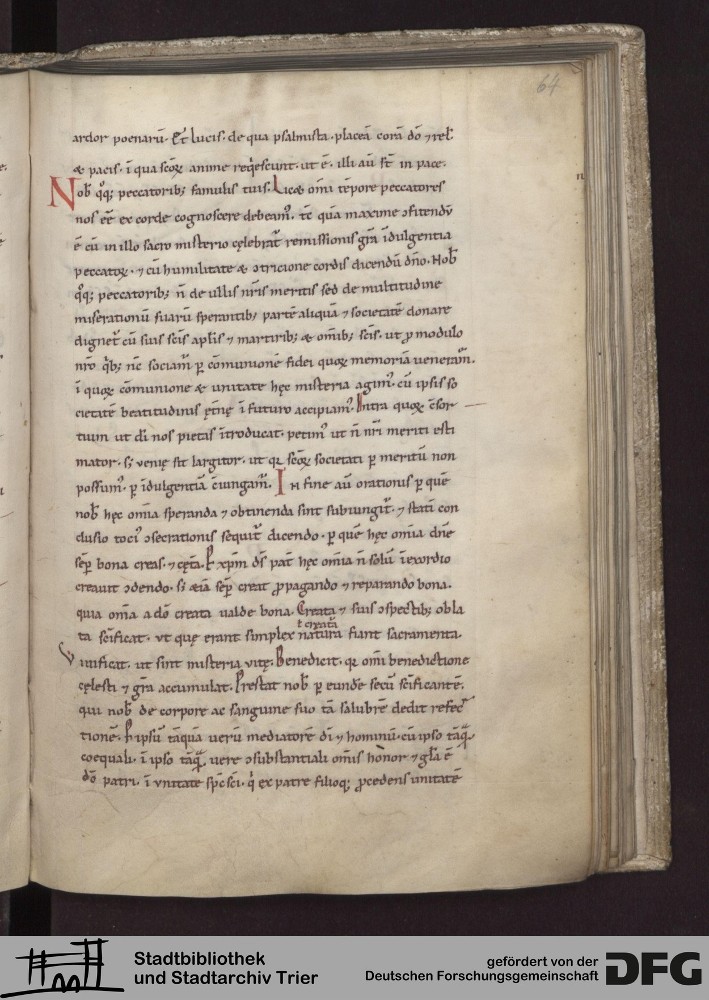 64
ardor poenarū. Et lucis. de qua psalmista. placeā corā dō ⁊ rel̄.
& pacis. ī qua scōꝝ anime reqescunt. ut ē. illi aū st̄ in pace.
Nob̄ qꝫ peccatoribꝫ famulis tuis. Licet om̄i tēpore peccatores
nos eē ex corde cognoscere debeam᷒. tc̄ quā maxime ↄfitendū
ē cū in illo sacro misterio celebrat̄ remissionis gr̄a īdulgentia
peccatoꝝ. ⁊ cū humilitate & ↄtricione cordis dicendū dn̄o. Nob̄
qꝫ peccatoribꝫ n̄ de ullis nr̄is meritis sed de multitudine
miserationū suarū sperantibꝫ partē aliquā ⁊ societatē donare
dignet̄ cū suis scīs apl̄is ⁊ martiribꝫ & om̄ibꝫ scīs. ut ꝓ modulo
nr̄o qbꝫ nc̄ sociam̄ ꝑ cōmunionē fidei quoꝝ memoriā veneram̄.
ī quoꝝ cōmunione & unitate hęc misteria agim᷒. cū ipsis so
cietatē beatitudinis ęt̄nę ī futuro accipiam᷒. Intra quoꝝ cōsor
tium ut dī nos pietas ītroducat. petim᷒ ut n̄ nr̄i meriti esti
mator. sꝫ venię sit largitor. ut qꝛ scōꝝ societati ꝑ meritū non
possum᷒. ꝑ īdulgentiā cīungam̄. IN fine aū orationis ꝑ quē
nob̄ hęc omīa speranda ⁊ obtinenda sint subiungit̄. ⁊ stati con
clusio toci᷒ ↄsecrationis sequit̄ dicendo. ꝑ quē hęc omīa dn̄e
sēp bona creas. ⁊ cęt̄a. P xp̄m ds̄ pat̄ hęc omīa n̄ solū īexordio
creauit ↄdendo. sꝫ &iā sēp creat ꝓpagando ⁊ reparando bona.
quia omīa a dō creata ualde bona. Creata ⁊ suis ↄspectibꝫ obla
ta sc̄ificat. vt quę erant simplex natura fiant sacramenta.
ł creat̄a
Viuificat. ut sint misteria vitę. Benedicit. qꝛ om̄i benedictione
cęlesti ⁊ gr̄a accumulat. Prestat nob̄ ꝑ eundē secū sc̄ificantē.
qui nob̄ de corpore ac sanguine suo tā salubrē dedit refec
tionē. P ipsū tāquā uerū mediatorē dī ⁊ hominū. cū ipso tāꝗ̄
coequali. ī ipso tāꝗ̄ vere ↄsubstantiali omīs honor ⁊ gl̄a ē
dō patri. ī vnitate sp̄c sc̄i. q ex patre filioqꝫ ꝓcedens unitatē
Stadtbibliothek
und Stadtarchiv Trier
gefördert von der
Deutschen Forschungsgemeinschaft
DFG